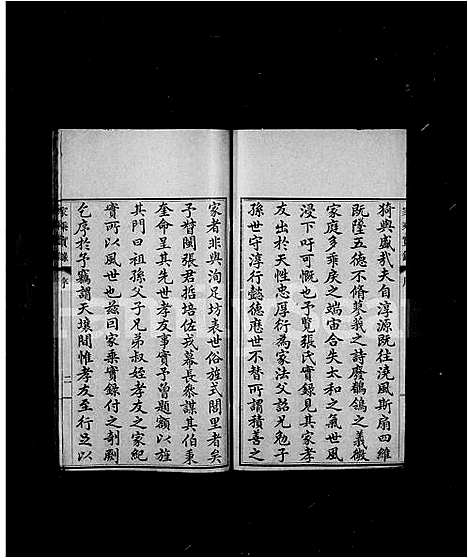 猗與盛哉夫自淳源既往澆風斯扇四維
既墮五德不脩蓼莪之詩廢鶺鴒之義微
家庭多乖戾之端宙合失太和之氣世風
浸下吁可慨也予覽張氏實錄見其家孝
友出於天性忠厚衍為家法父詔兄勉子
孫世守淳行懿德應世不替所謂積善之
家者非與洵足坊表世俗旌式閭里者矣
予督關張君哲培佐戎幕長叅謀其伯秉
奎命呈其先世孝友事實予曾題額以旌
其門曰祖孫父子兄弟叔姪孝友之家紀
實所以風世也茲囙家乘實錄付之剞劂
乞序於予竊謂天壤間惟孝友至行足以
家乘實錄
序
二